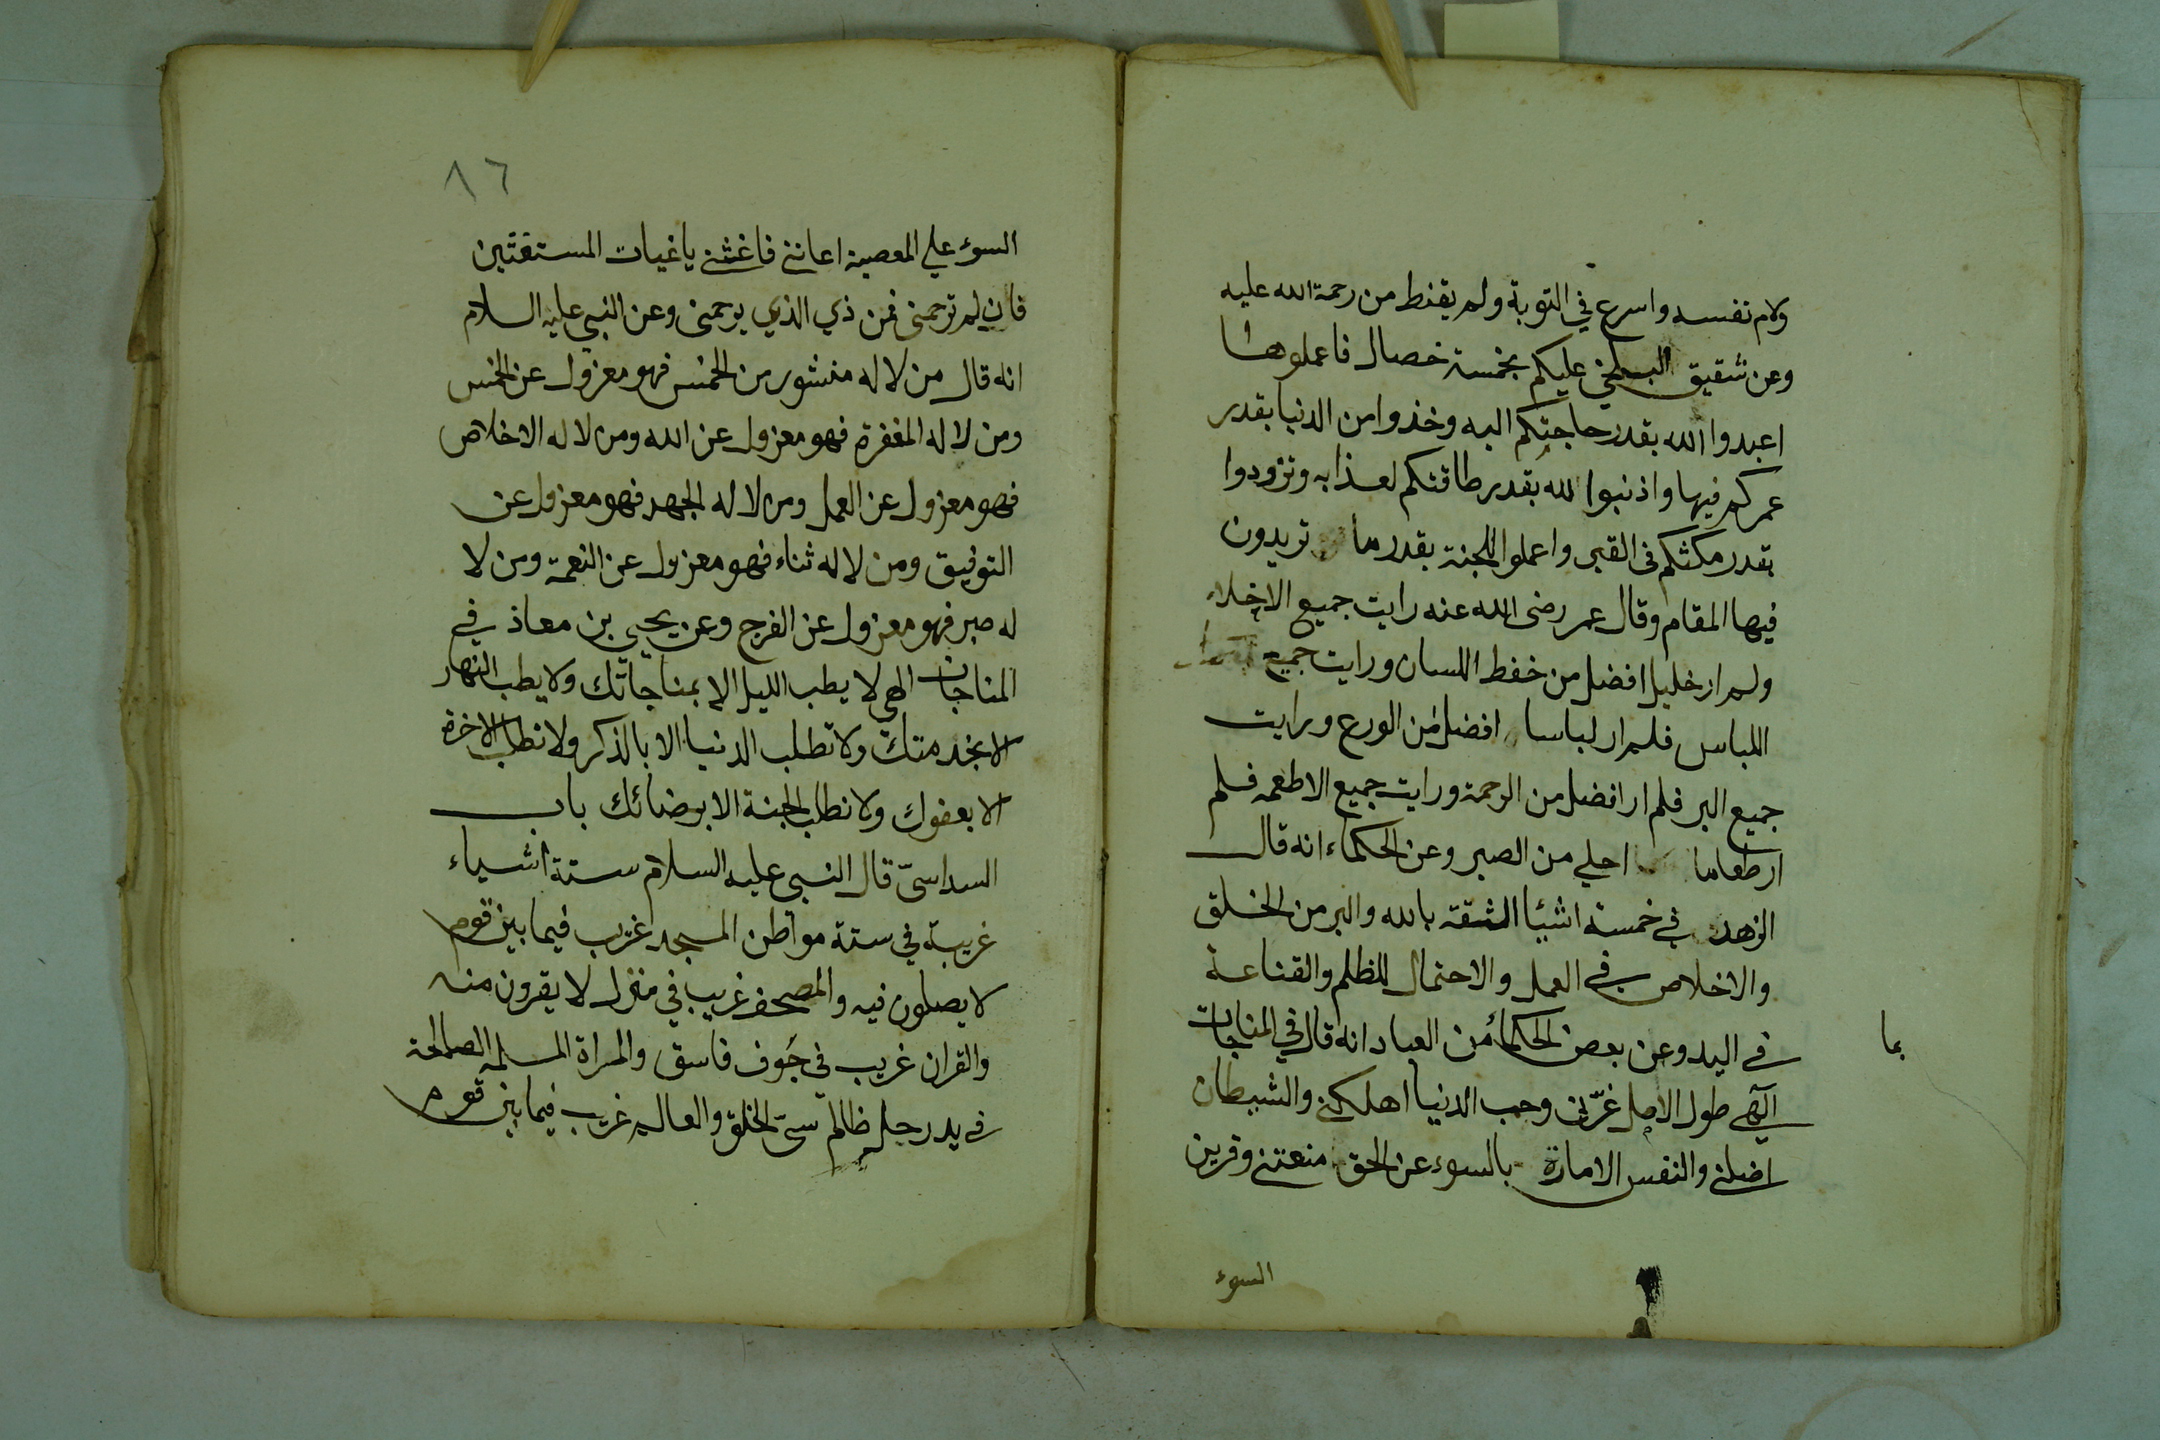 ولام نفسه واسرع في التوبة ولم يقنط من رحمة الله عليه
وعن شقيق البلخي عليكم بخمسة خصال فاعملوها
اعبدوا الله بقدر حاجتكم اليه وخذوا من الدنيا بقدر
عمركم فيها واذنبوا لله بقدر طاقتكم لعذابه وتزودوا
بقدر مكثكم في القبر واعملوا للجنة بقدر ما تريدون
فيها المقام وقال عمر رضي الله عنه رايت جميع الاخلاء
ولم ار خليل افضل من خفط اللسان ورايت جميع
اللباس فلم ار لباسا افضل من الورع ورايت
جميع البر فلم ار افضل من الرحمة ورايت جميع الاطعمه فلم
ار طعاما احلي من الصبر وعن الحكماء انه قال
الزهد في خمسة اشيئا الثقة بالله والبر من الخلق
والاخلاص في العمل والاحتمال للظلم والقناعة
في اليد وعن بعض الحكمائ من العباد انه قال في المناجات
بما
الهي طول الامل غرّني وحب الدنيا اهلكني والشيطان
اضلني والنفس الامارة بالسوء عن الحق منعتني وقرين
السوء
٨٦
السوء علي المعصية اعانني فاغثني ياغياث المستغثين
فان لم ترحمني فمن ذي الذي يرحمني وعن النبي عليه السلام
انه قال من لا له منشور من الخمس فهو معزول عن الخمس
ومن لا له المغفرة فهو معزول عن الله ومن لا له الاخلاص
فهو معزول عن العمل ومن لا له الجهد فهو معزول عن
التوفيق ومن لا له ثناء فهو معزول عن النعمة ومن لا
له صبر فهو معزول عن الفرج وعن يحيي بن معاذ في
المناجات الهي لا يطب الليل الا بمناجاتك ولا يطب النهار
الا بخدمتك ولا تطلب الدنيا الا بالذكر ولا تطلب الاخرة
الا بعفوك ولا تطلب الجنة الا برضائك باب
السداسيّ قال النبي عليه السلام ستة اشياء
غريبة في ستة مواطن المسجد غريب فيما بين قوم
لا يصلون فيه والمصحف غريب في منزل لا يقرون منه
والقران غريب في جَوف فاسق والمراة المسلمة الصالحة
في يد رجل ظالم سيّ الخلق والعالم غريب فيما بين قوم